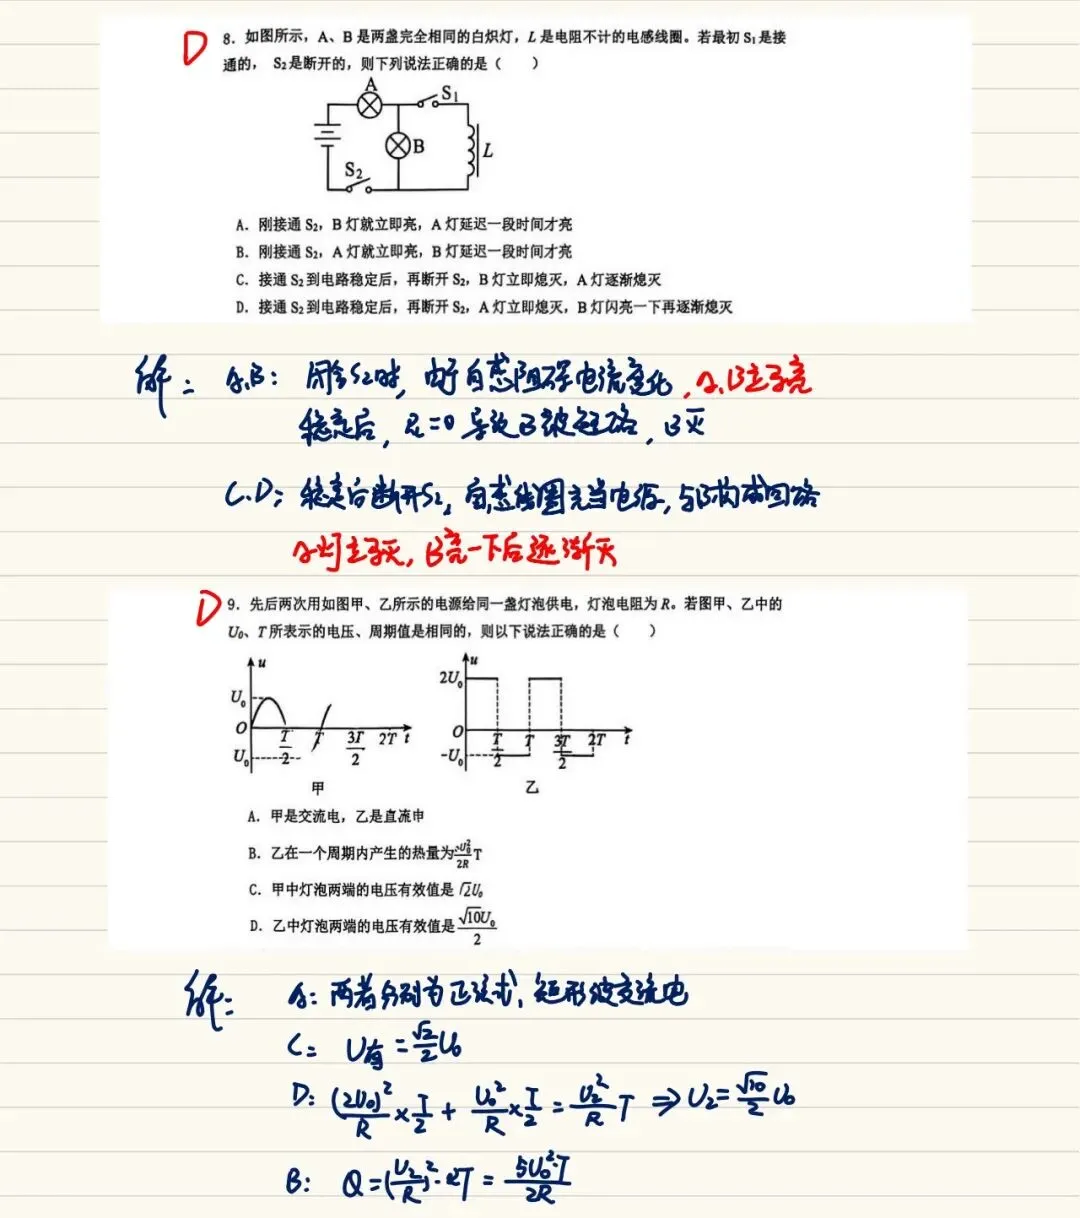 D 8. 如图所示，A、B 是两盏完全相同的白炽灯，L 是电阻不计的电感线圈。若最初 S₁ 是接
通的， S₂ 是断开的，则下列说法正确的是（ ）
A
S₁
B
L
S₂
A. 刚接通 S₂，B 灯就立即亮，A 灯延迟一段时间才亮
B. 刚接通 S₂，A 灯就立即亮，B 灯延迟一段时间才亮
C. 接通 S₂ 到电路稳定后，再断开 S₂，B 灯立即熄灭，A 灯逐渐熄灭
D. 接通 S₂ 到电路稳定后，再断开 S₂，A 灯立即熄灭，B 灯闪亮一下再逐渐熄灭
解： A.B： 闭合S₂时，由于自感阻碍电流变化，A、B立了亮
稳定后，R_L=0 导致B被短路，B灭
C.D； 稳定后断开S₂，自感线圈充当电源，与B构成回路
A灯立了灭，B亮一下后逐渐灭
D 9. 先后两次用如图甲、乙所示的电源给同一盏灯泡供电，灯泡电阻为 R。若图甲、乙中的
U₀、T 所表示的电压、周期值是相同的，则以下说法正确的是（ ）
u
U₀
O
T/2 T 3T/2 2T t
U₀
甲
u
2U₀
O
T/2 T 3T/2 2T t
-U₀
乙
A. 甲是交流电，乙是直流申
B. 乙在一个周期内产生的热量为 U₀²/2R T
C. 甲中灯泡两端的电压有效值是 √2U₀
D. 乙中灯泡两端的电压有效值是 √10U₀/2
解： A：两者分别为正弦式、矩形波交流电
C： U有 = √2/2 U₀
D： (2U₀)²/R × T/2 + U₀²/R × T/2 = U₂²/R T ⇒ U₂ = √10/2 U₀
B： Q = (U₂/R)²·RT = 5U₀²·T/2R